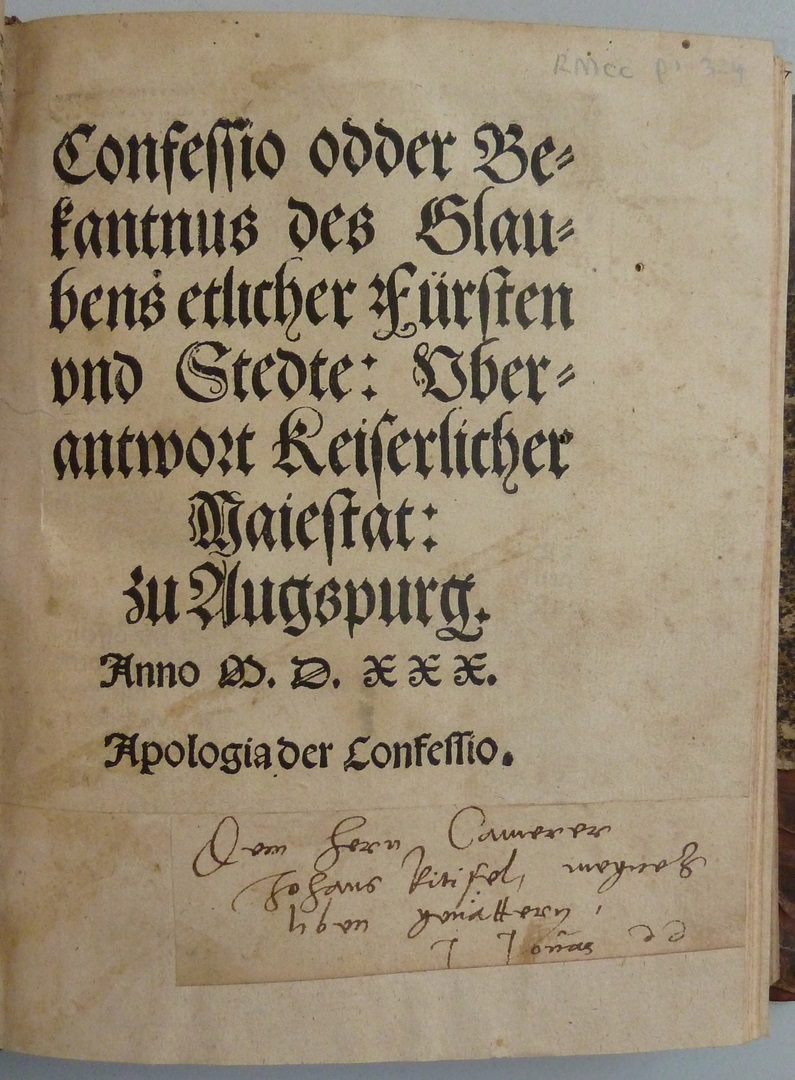 RMcc p. 324
Confessio odder Be⸗
kantnus des Glau⸗
bens etlicher Fürsten
vnd Stedte: Vber⸗
antwort Keiserlicher
Maiestat:
zu Augspurg.
Anno M. D. XXX.
Apologia der Confessio.
Dem hern Camerer
Johans
liben geuattern,
J Jonas dd